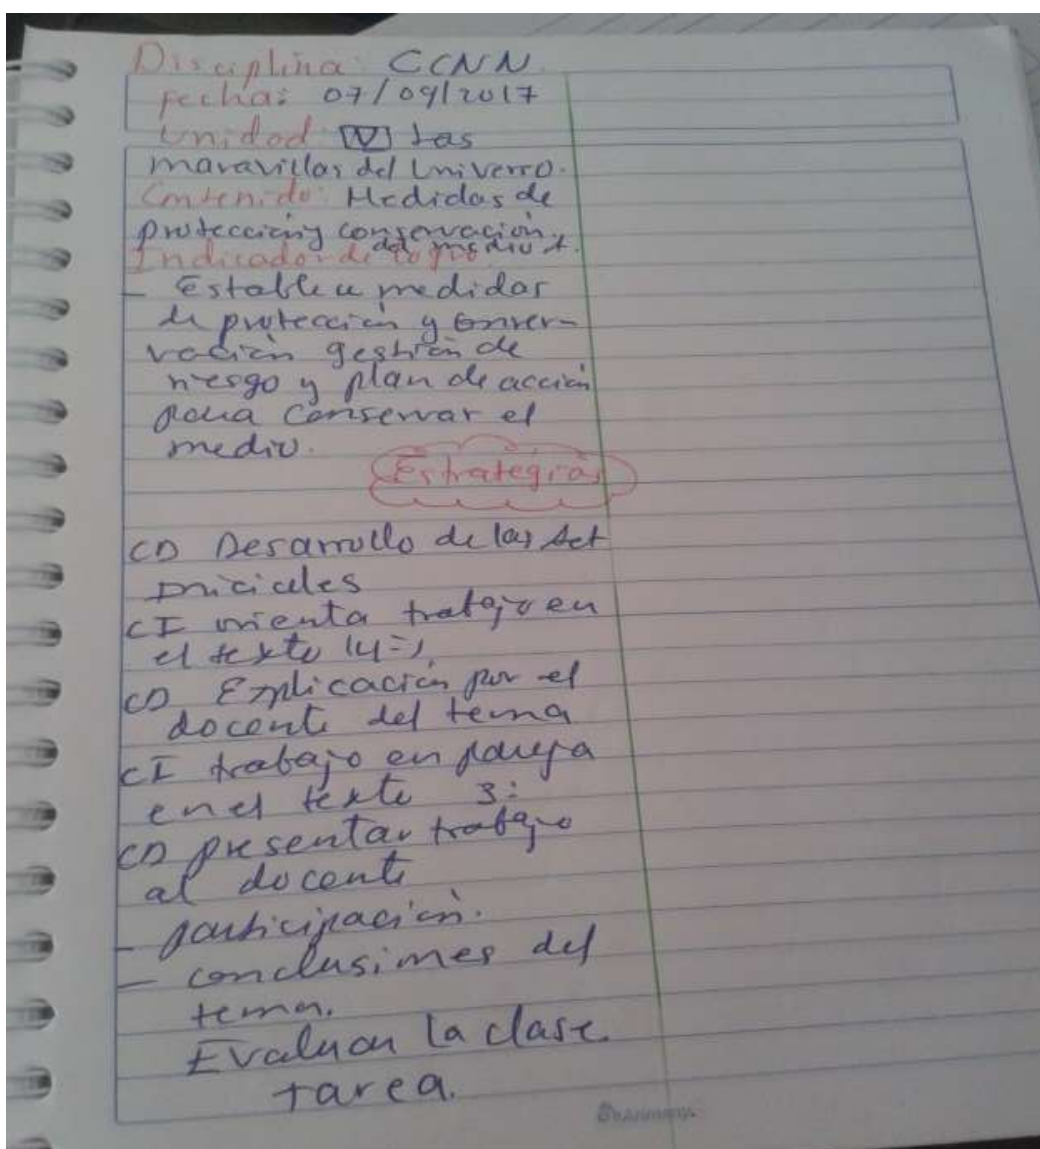 Disciplina: CCNN
fecha: 07/09/2017
Unidad IV Las
maravillas del Universo.
Contenido: Medidas de
protección y conservación
del medio A.
Indicador de logro
- Establece medidas
de protección y conser-
vación gestión de
riesgo y plan de acción
para conservar el
medio.
Estrategias
CD Desarrollo de las Act
Iniciales
CI orienta trabajo en
el texto
CD Explicación por el
docente del tema
CI trabajo en pareja
en el texto 3:
CD presentar trabajo
al docente
- participación.
- conclusiones del
tema.
Evaluan la clase.
tarea.